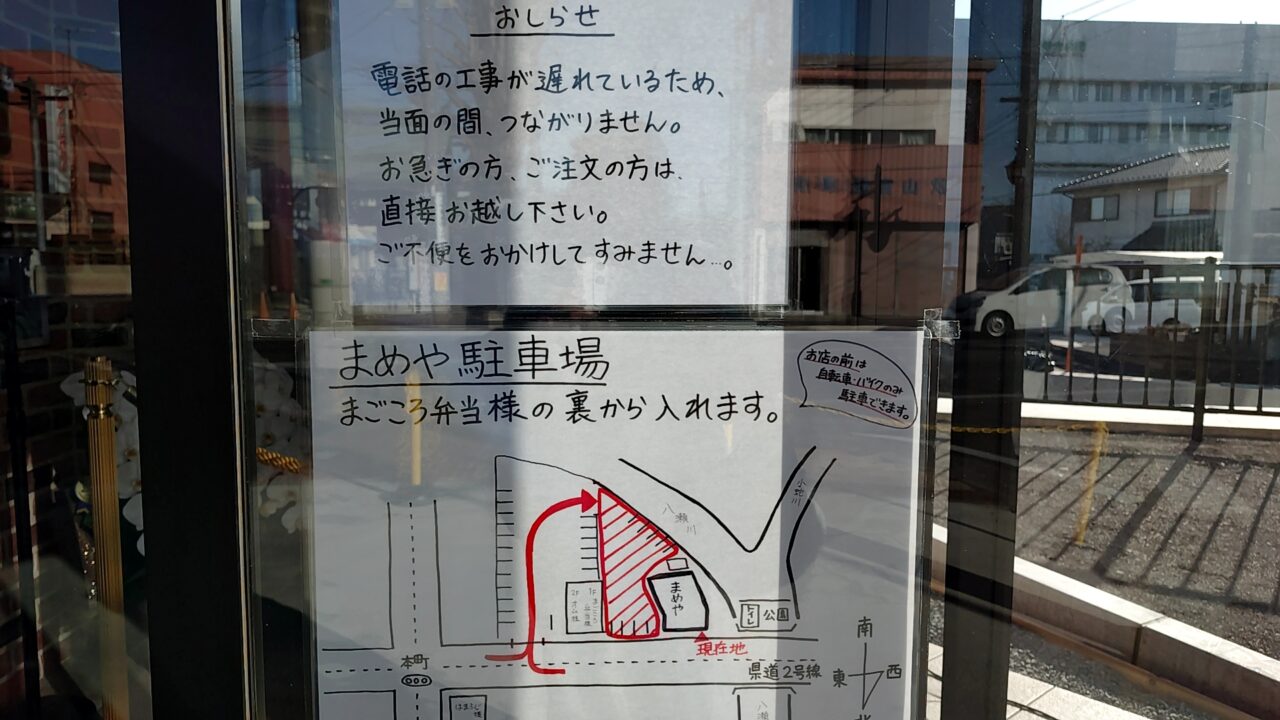 おしらせ
電話の工事が遅れているため、
当面の間、つながりません。
お急ぎの方、ご注文の方は、
直接お越し下さい。
ご不便をおかけしてすみません…。
まめや駐車場
まごころ弁当様の裏から入れます。
お店の前は
自転車・バイクのみ
駐車できます。
小池川
八瀬川
まめや
1F まごころ弁当様
2F
トイレ
公園
現在地
本町
県道2号線
南
東
西
北
八瀬